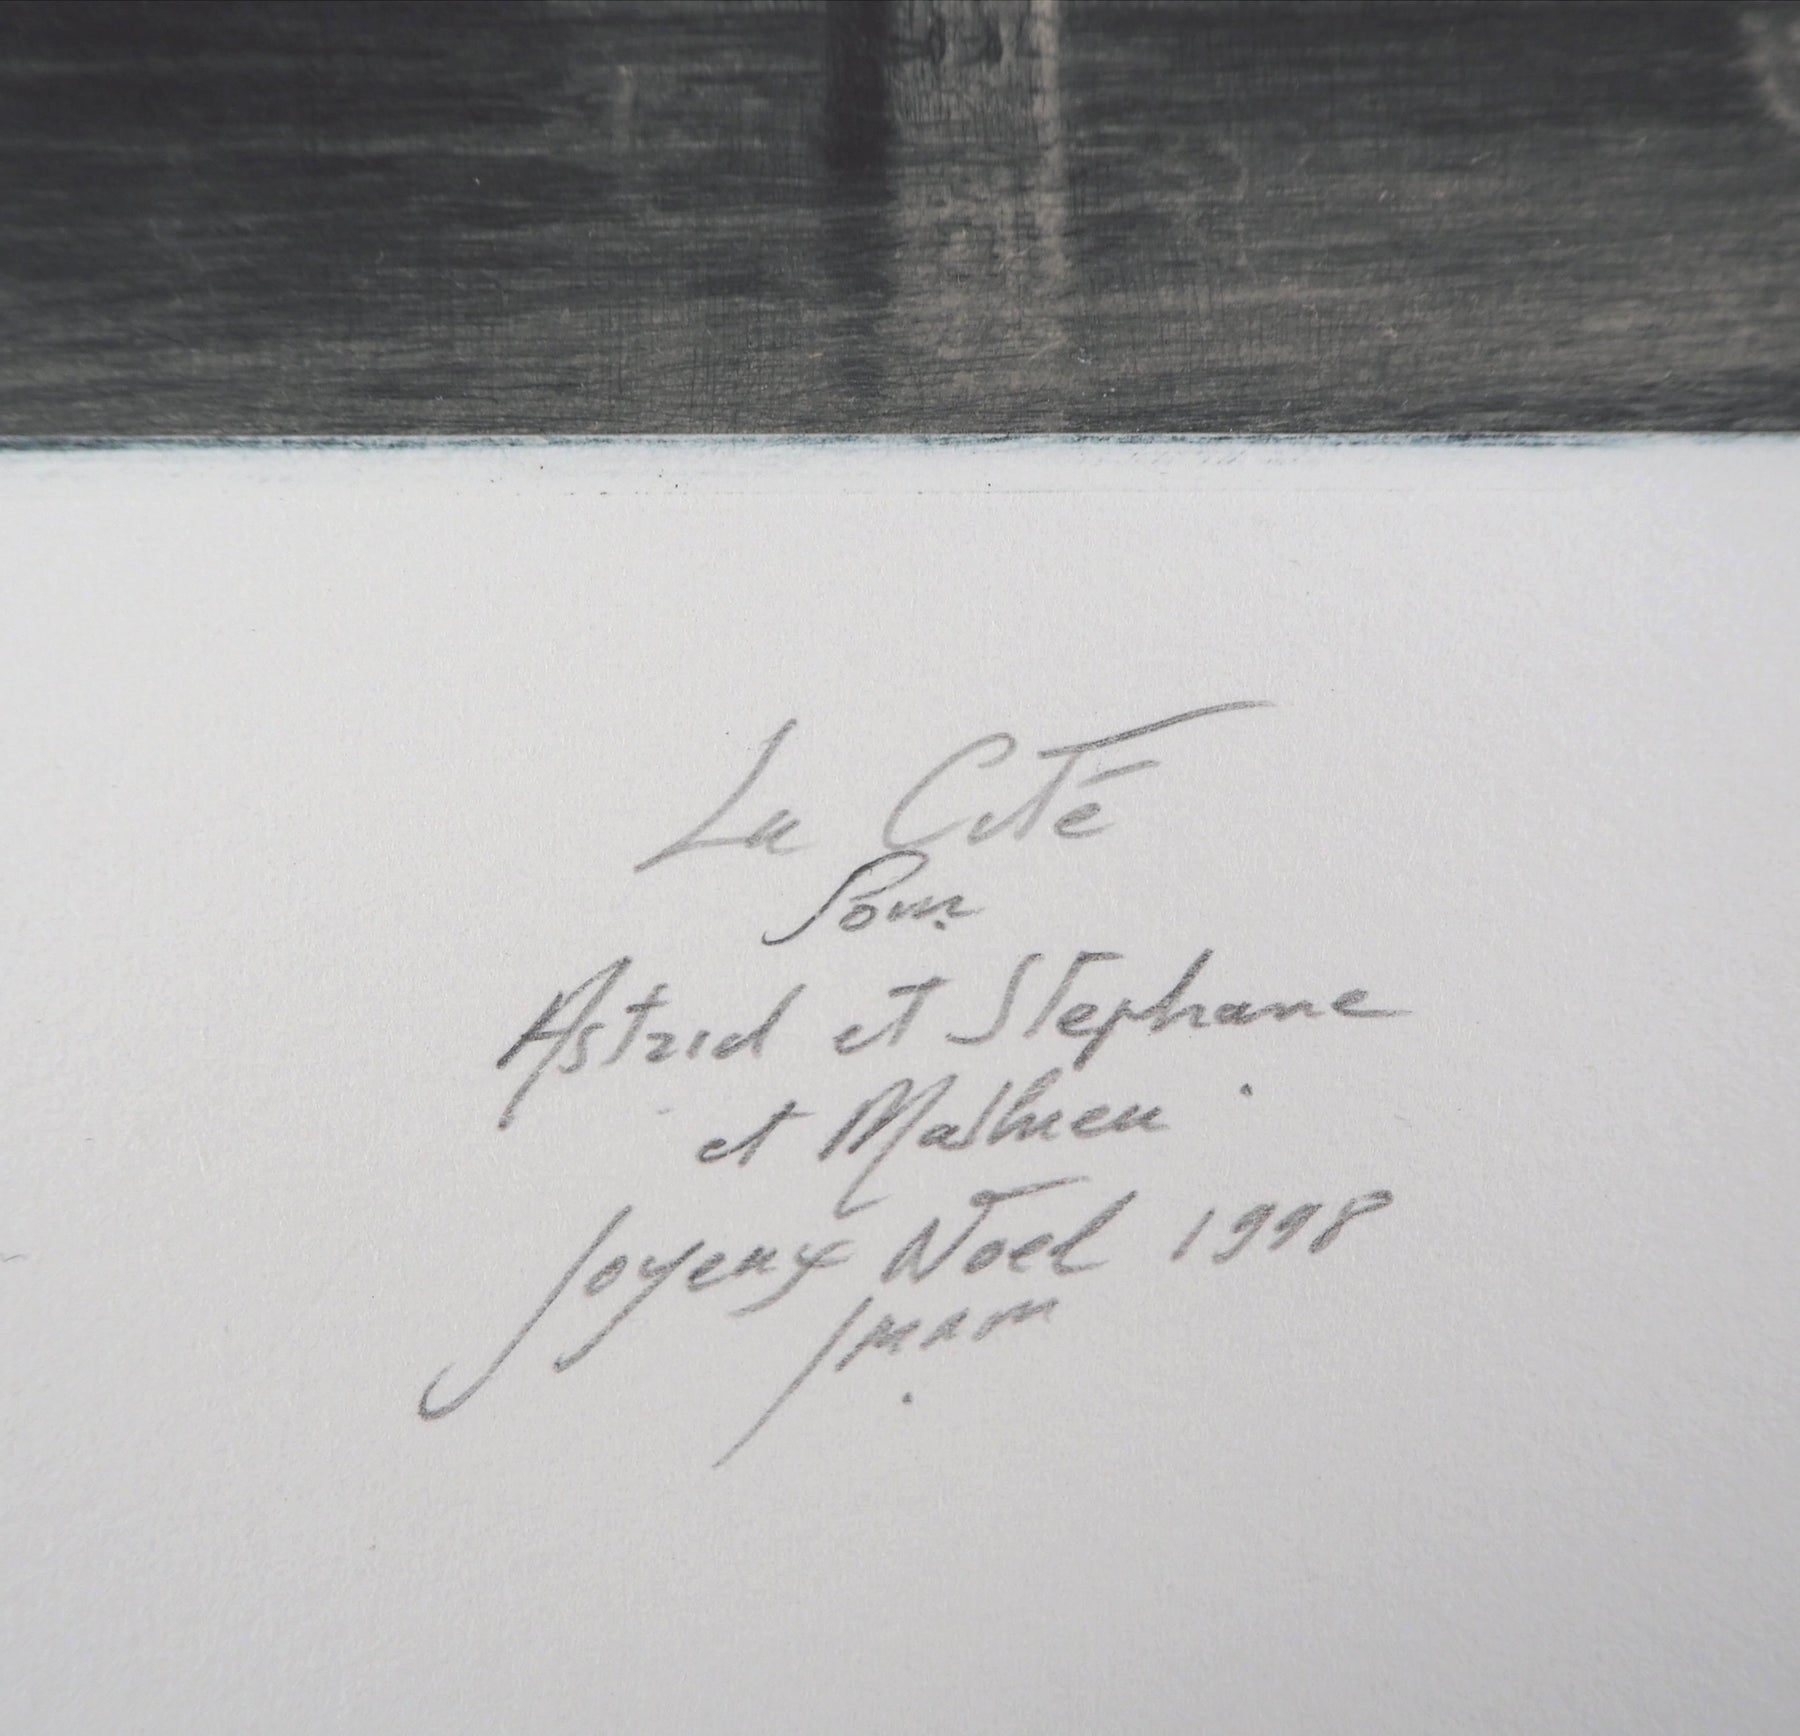 La Cité
Pour
Astrid et Stephane
et Mathieu.
Joyeux Noël 1998